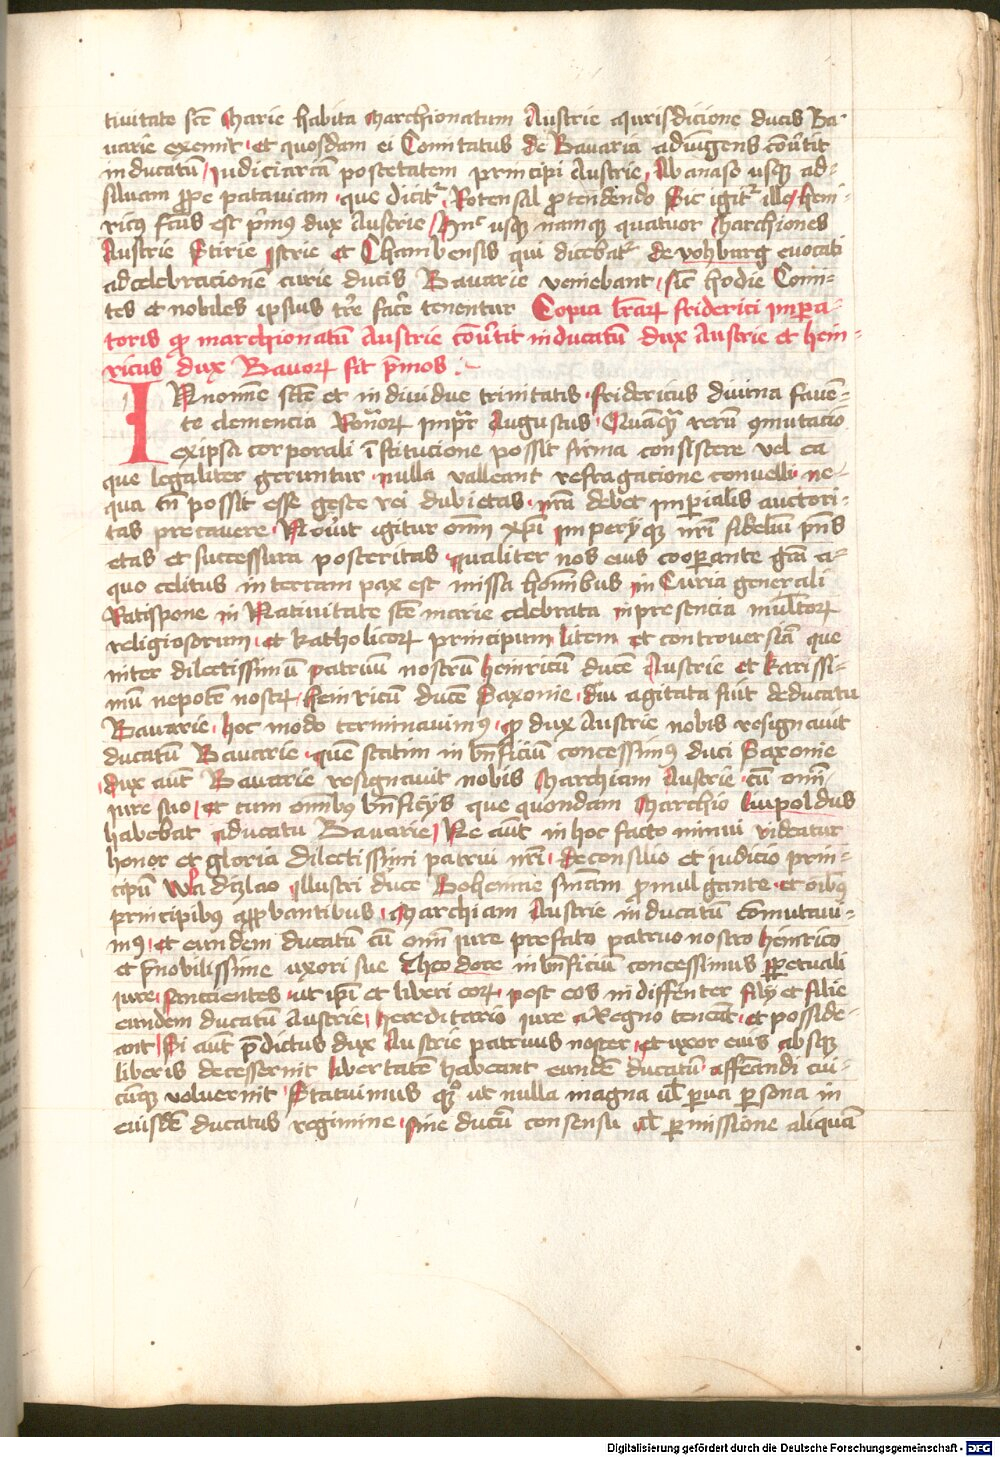 tiuitate scē Marie habita Marchionatum Austrie a Jurisdicione ducis Ba-
uarie exemit et quosdam ei Comitatus de Bauaria adiungens cōu̅tit
in ducatū Judiciariā postetatem principi Austrie Ab anaso usq̨ ad
siluam prope patauiam que dicitr̄ Rotensal protendendo Sic igitr̄ ille hein-
ricus fc̄us est p̄mus dux Austrie Hinc usq̨ namq̨ quatuor Marchiones
Austrie Stirie Istrie et Chambensis qui dicebatr̄ de vohburg euocati
ad celebracionē curie ducis Bauarie veniebant sic hodie Comi-
tes et nobiles ipsius tr̄e face̅ tenentur Copia lr̄arꝝ friderici impa-
toris qꝫ marchionatū Austrie cōu̅tit in ducatū dux Austrie et hein-
ricus dux Bauorꝝ sit p̄mos
IN nomīe scē et indiuidue trinitatis fridericus diuina fauen-
te clemencia Romorꝝ impr̄ Augustus Quāq̄ rerū ꝯmutacio
ex ipsa corporali īstitucione possit firma consistere vel ea
que legaliter geruntur nulla valleant refragacione conuelli ne
qua tn̄ possit esse geste rei dubietas nr̄a debet impialis auctori-
tas precauere Nou̅it igitur om̄i xp̄i imperyq̨ nr̄i fideliū pn̄s
etas et successura posteritas qualiter nos eius coopante gr̄a a
quo celitus in terram pax est missa homībus in Curia generali
Ratispone in Natiuitate scē marie celebrata in presencia multorꝝ
religiosorum et katholicorꝝ principum litem et controuersiā que
inter dilectissimū patruū nostrū heinricū ducē Austrie et karissi-
mū nepotē nostrꝝ heinricū ducē Saxonie diu agitata fuit de ducatu
Bauarie hoc modo terminauimꝰ qꝫ dux Austrie nobis resignauit
ducatū Bauarie quē statim in bn̄ficiū concessimꝰ duci Saxonie
dux aut̄ Bauarie resignauit nobis Marchiam Austrie cū om̄i
iure suo et cum omībꝰ bn̄ficys que quondam Marchio Liupoldus
habebat a ducatu Bauarie Ne aut̄ in hoc facto minui videatur
honor et gloria dilectissimi patrui nr̄i de consilio et iudicio prin-
cipū Wladizlao illustri duce Bohemie snīam pmulgante et oībꝰ
principibꝰ approbantibus Marchiam Austrie in ducatū cōmutaui-
mꝰ et eundem ducatū cū om̄i iure prefato patruo nostro heinrico
et p̄nobilissime uxori sue Theodore in bn̄ficiū concessimus ppetuali
iure sanccientes ut ip̄i et liberi eorꝝ post eos indiffēnter filÿ et filie
eundem ducatū Austrie hereditario iure a Regno teneāt et posside-
ant Si aut̄ p̄dictus dux Austrie patruus noster et uxor eius absq̨
liberis decesserint libertatē habeant eundē ducatū affectandi cui-
cūq̨ voluerint Statuimus qꝫ ut nulla magna ul̄ parua psona in
eiusdē ducatus regimine sine ducū consensu ul̄ pmissione aliquam
Digitalisierung gefördert durch die Deutsche Forschungsgemeinschaft - DFG